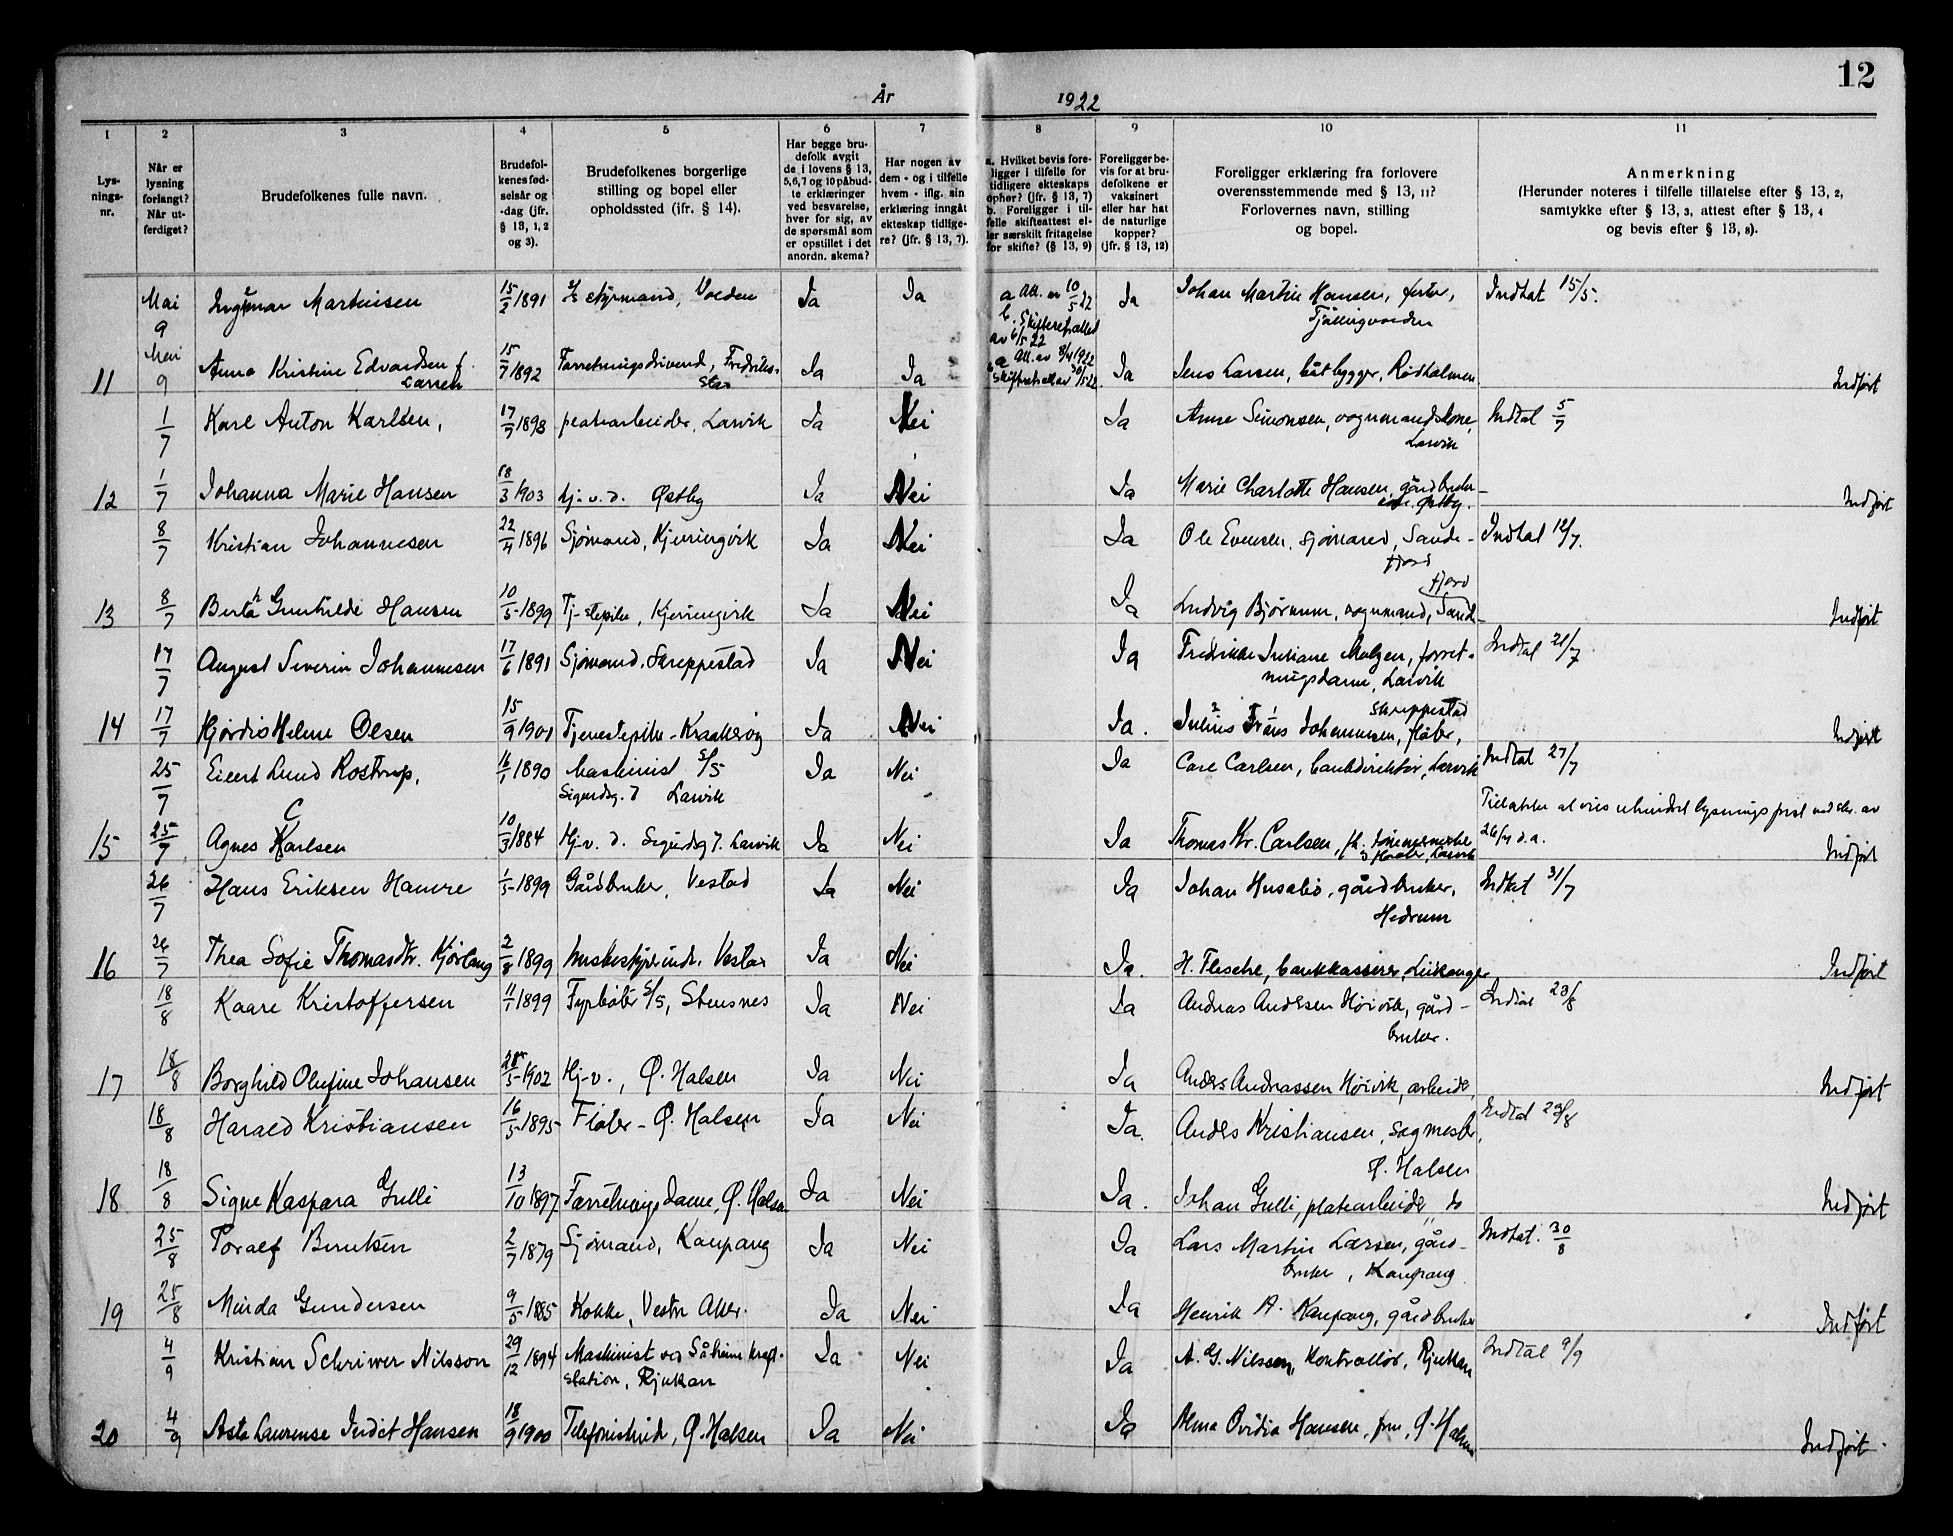 12
År 1922
1 2 3 4 5 6 7 8 9 10 11
Lys-
nings-
nr.
Når er
lysning
forlangt?
Når ut-
ferdiget?
Brudefolkenes fulle navn.
Brudefol-
kenes fød-
selsår og
-dag (jfr.
§ 13, 1, 2
og 3).
Brudefolkenes borgerlige
stilling og bopel eller
opholdssted (ifr. § 14).
Har begge bru-
defolk avgit
de i lovens § 13,
5,6,7 og 10 påbud-
te erklæringer
ved besvarelse,
hver for sig, av
de spørsmål som
er opstillet i det
anordn. skema?
Har nogen av
dem - og i tilfelle
hvem - iflg. sin
erklæring inngått
ekteskap tidlige-
re? (jfr. § 13, 7).
a. Hvilket bevis fore-
ligger i tilfelle for
tidligere ekteskaps
ophør? (jfr. § 13, 7)
b. Foreligger i til-
felle skifteattest el-
ler særskilt fritagelse
for skifte? (§ 13, 9)
Foreligger be-
vis for at bru-
defolkene er
vaksinert
eller har hat
de naturlige
kopper?
(jfr. § 13, 12)
Foreligger erklæring fra forlovere
overensstemmende med § 13, 11?
Forlovernes navn, stilling
og bopel.
Anmerkning
(Herunder noteres i tilfelle tillatelse efter § 13, 2,
samtykke efter § 13, 3, attest efter § 13, 4
og bevis efter § 13, 8).
Mai 9 Ingmar Martinsen 15/2 1891 styrmand, Ja Ja a Att. av 10/5 22 Ja Johan Martin Hansen, Indtat 15/5.
b. Skifteretsattest
av 6/5 22
11 Mai 9 Anna Kristine Edvardsen f. 15/7 1892 Forretningsdrivend, Fredriks- Ja Ja a Att. av Ja Jens Larsen, båtbygger, Rødholmen Indført
Larsen stad
1/7 Karl Anton Karlsen, 17/7 1898 platearbeider, Larvik Ja Nei Ja Anne Simonsen, vognmandskone, Indtat 5/7
Larvik
12 1/7 Johanna Marie Hansen 18/3 1903 hj. v. d. Østby Ja Nei Ja Marie Charlotte Hansen, gårdbruker- Indført
Østby.
8/7 Kristian Johannesen 22/4 1896 Sjømand, Kjerringvik Ja Nei Ja Ole Evensen, sjømand, Sande- Indtat 12/7.
fjord
fjord
13 8/7 Berta Gunhilde Hansen 10/5 1899 Tj-stepike, Kjerringvik Ja Nei Ja Ludvig Bjørnum, vognmand, Sande- Indført
17/7 August Severin Johannesen 17/6 1891 Sjømand. Skreppestad Ja Nei Ja Fredrikke Juliane Melgen, forret- Indtat 21/7
ningsdame, Larvik
Skreppestad
14 17/7 Hjørdis Helene Olsen 15/9 1901 Tjenestepike. Kraakerøy Ja Nei Ja. Julius Frans Johannesen, fløter, Indført
25/7 Eilert Lund Rostrup, 16/1 1890 Maskinist S/S Ja Nei Ja Carl Carlsen, bankdirektør, Larvik Indtat 27/7
Sigurdsg. 7 Larvik
15 25/7 Agnes Carlsen 10/3 1884 Hj. v. d. Sigurdsg 7. Larvik Ja Nei Ja Thomas Kr. Carlsen, Larvik 26/7 d.a. Indført
26/7 Hans Eriksen Hamre 1/5 1899 Gårdbruker, Vestad Ja Nei Ja Johan Husabø, gårdbruker, Indtat 31/7
Hedrum
16 26/7 Thea Sofie Thomasdtr. Kjørlaug 2/8 1899 Vestad Ja Nei Ja. H. Flesche, bankkasserer, Leikanger Indført
18/8 Kaare Kristoffersen 11/1 1899 Fyrbøter S/S, Stensnes Ja Nei Ja Andreas Andersen Høivik, gård- Indtat 23/8
bruker.
17 18/8 Borghild Olufine Johansen 28/5 1902 Hj-v., Ø. Halsen Ja Nei Ja Anders Andreassen Høivik, arbeider, Indført
18/8 Harald Kristiansen 16/5 1895 Fløter - Ø. Halsen Ja Nei Ja. Anders Kristiansen, sagmester, Indtat 23/8
Ø. Halsen
18 18/8 Signe Kaspara Gulli 13/10 1897 Forretningsdame, Ø. Halsen Ja Nei Ja. Johan Gulli, platearbeider, do Indført
25/8 Toralf Berntsen 2/7 1879 Sjømand, Kaupang Ja Nei Ja Lars Martin Larsen, gård- Indtat. 30/8
bruker, Kaupang
19 25/8 Minda Gundersen 9/5 1885 Kokke, Vestre Aker. Ja Nei Ja Henrik A. Kaupang, gårdbruker Indført
4/9 Kristian Schriwer Nilsson 29/12 1894 Maskinist ved Såheim kraft- Ja Nei Ja A. G. Nilssen, Kontrollør, Rjukan Indtat 9/9
station, Rjukan
20 4/9 Asta Laurense Judit Hansen 18/9 1900 Telefonistinde, Ø. Halsen Ja Nei Ja Alma Ovidia Hansen, fru, Ø. Halsen Indført.